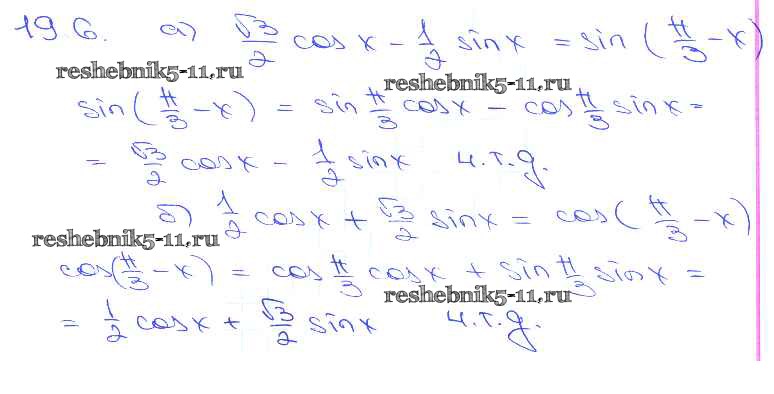 19.6. а) √3/2 cos x − 1/2 sin x = sin (π/3 − x)
reshebnik5-11.ru
reshebnik5-11.ru
sin(π/3 − x) = sin π/3 cos x − cos π/3 sin x =
= √3/2 cos x − 1/2 sin x ч.т.д.
б) 1/2 cos x + √3/2 sin x = cos(π/3 − x)
reshebnik5-11.ru
cos(π/3 − x) = cos π/3 cos x + sin π/3 sin x =
reshebnik5-11.ru
= 1/2 cos x + √3/2 sin x ч.т.д.